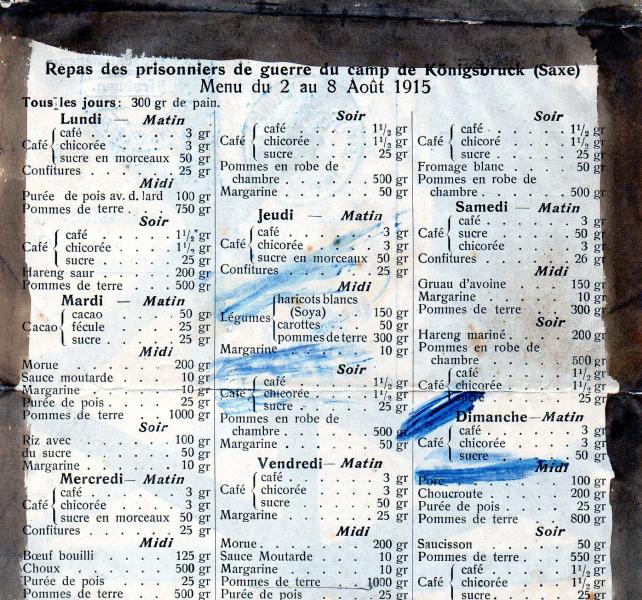 Repas des prisonniers de guerre du camp de Königsbrück (Saxe)
Menu du 2 au 8 Août 1915
Tous les jours: 300 gr de pain.
Lundi — Matin
Café { café . . . . 3 gr
chicorée . . . 3 gr
sucre en morceaux 50 gr
Confitures . . . . 25 gr
Midi
Purée de pois av. d. lard 100 gr
Pommes de terre . . 750 gr
Soir
Café { café . . . . 1½ gr
chicorée . . . 1½ gr
sucre . . . . 25 gr
Hareng saur . . . 200 gr
Pommes de terre . . 500 gr
Mardi — Matin
Cacao { cacao . . . 50 gr
fécule . . . 25 gr
sucre . . . 25 gr
Midi
Morue . . . . . 200 gr
Sauce moutarde . . . 10 gr
Margarine . . . . 10 gr
Purée de pois . . . 25 gr
Pommes de terre . . 1000 gr
Soir
Riz avec . . . . 100 gr
du sucre . . . . 50 gr
Margarine . . . . 10 gr
Mercredi — Matin
Café { café . . . . 3 gr
chicorée . . . 3 gr
sucre en morceaux 50 gr
Confitures . . . . 25 gr
Midi
Bœuf bouilli . . . 125 gr
Choux . . . . . 500 gr
Purée de pois . . . 25 gr
Pommes de terre . . 500 gr
Soir
Café { café . . . . 1½ gr
chicorée . . . 1½ gr
sucre . . . . 25 gr
Pommes en robe de
chambre . . . . 500 gr
Margarine . . . . 50 gr
Jeudi — Matin
Café { café . . . . 3 gr
chicorée . . . 3 gr
sucre en morceaux 50 gr
Confitures . . . . 25 gr
Midi
Légumes { haricots blancs
(Soya) . . . 150 gr
carottes . . . 50 gr
pommes de terre 300 gr
Margarine . . . . 10 gr
Soir
Café { café . . . . 1½ gr
chicorée . . . 1½ gr
sucre . . . . 25 gr
Pommes en robe de
chambre . . . . 500 gr
Margarine . . . . 50 gr
Vendredi — Matin
Café { café . . . . 3 gr
chicorée . . . 3 gr
sucre . . . . 50 gr
Margarine . . . . 25 gr
Midi
Morue . . . . . 200 gr
Sauce Moutarde . . . 10 gr
Margarine . . . . 10 gr
Pommes de terre . . 1000 gr
Purée de pois . . . 25 gr
Soir
Café { café . . . . 1½ gr
chicoré . . . 1½ gr
sucre . . . . 25 gr
Fromage blanc . . . 50 gr
Pommes en robe de
chambre . . . . 500 gr
Samedi — Matin
Café { café . . . . 3 gr
sucre . . . . 50 gr
chicorée . . . 3 gr
Confitures . . . . 26 gr
Midi
Gruau d'avoine . . . 150 gr
Margarine . . . . 10 gr
Pommes de terre . . 300 gr
Soir
Hareng mariné . . . 200 gr
Pommes en robe de
chambre . . . . 500 gr
Café { café . . . . 1½ gr
chicorée . . . 1½ gr
sucre . . . . 25 gr
Dimanche — Matin
Café { café . . . . 3 gr
chicorée . . . 3 gr
sucre . . . . 50 gr
Midi
Porc . . . . . 100 gr
Choucroute . . . . 200 gr
Purée de pois . . . 25 gr
Pommes de terre . . 800 gr
Soir
Saucisson . . . . 50 gr
Pommes de terre . . 550 gr
Café { café . . . . 1½ gr
chicorée . . . 1½ gr
sucre . . . . 25 gr